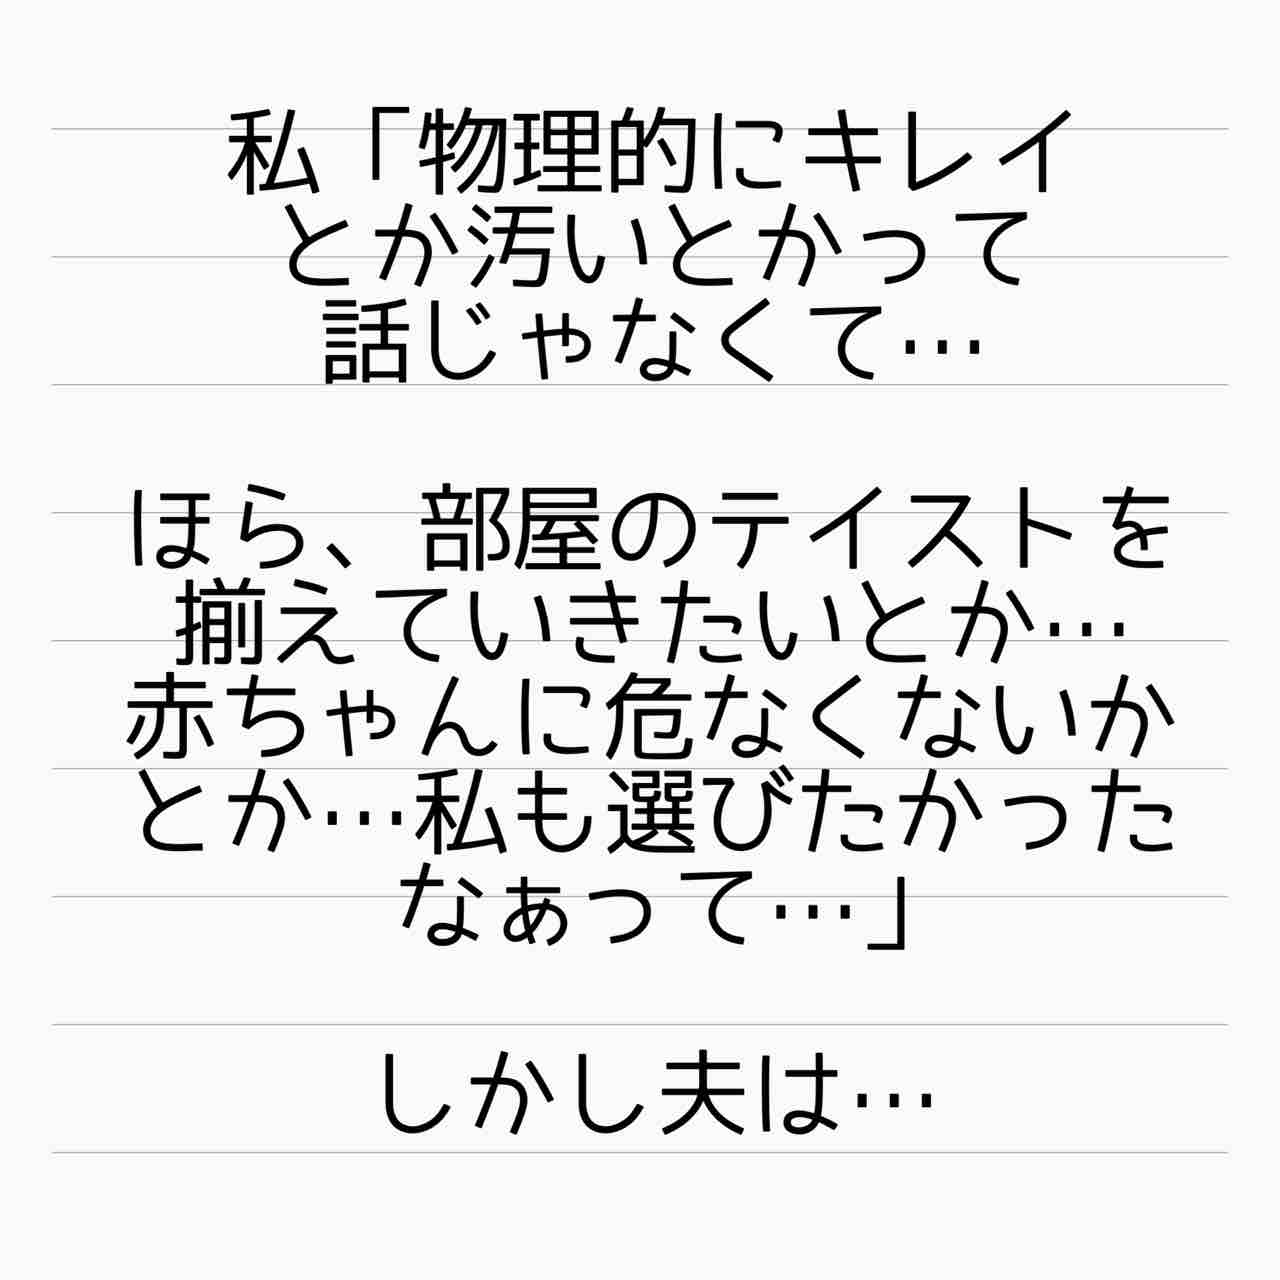 私「物理的にキレイ
とか汚いとかって
話じゃなくて…
ほら、部屋のテイストを
揃えていきたいとか…
赤ちゃんに危なくないか
とか…私も選びたかった
なぁって…」
しかし夫は…